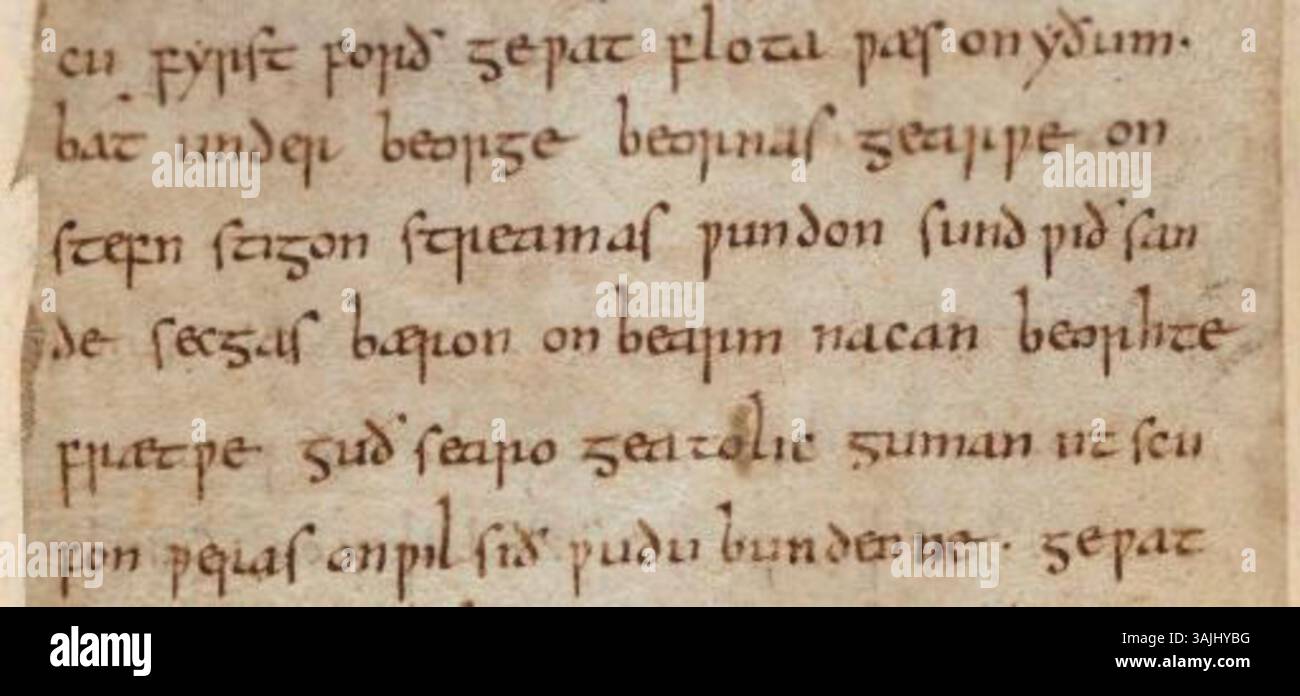 cu fyrst forð geƿat flota ƿæs on yðum·
bat under beorge beornas gearƿe on
stefn stigon streamas ƿundon sund ƿið san
de secgas bæron on bearm nacan beorhte
frætƿe guð searo geatolic guman ut scu
fon ƿeras on ƿil sið ƿudu bundenne · geƿat
alamy
Image ID: 3AJHYBG
www.alamy.com